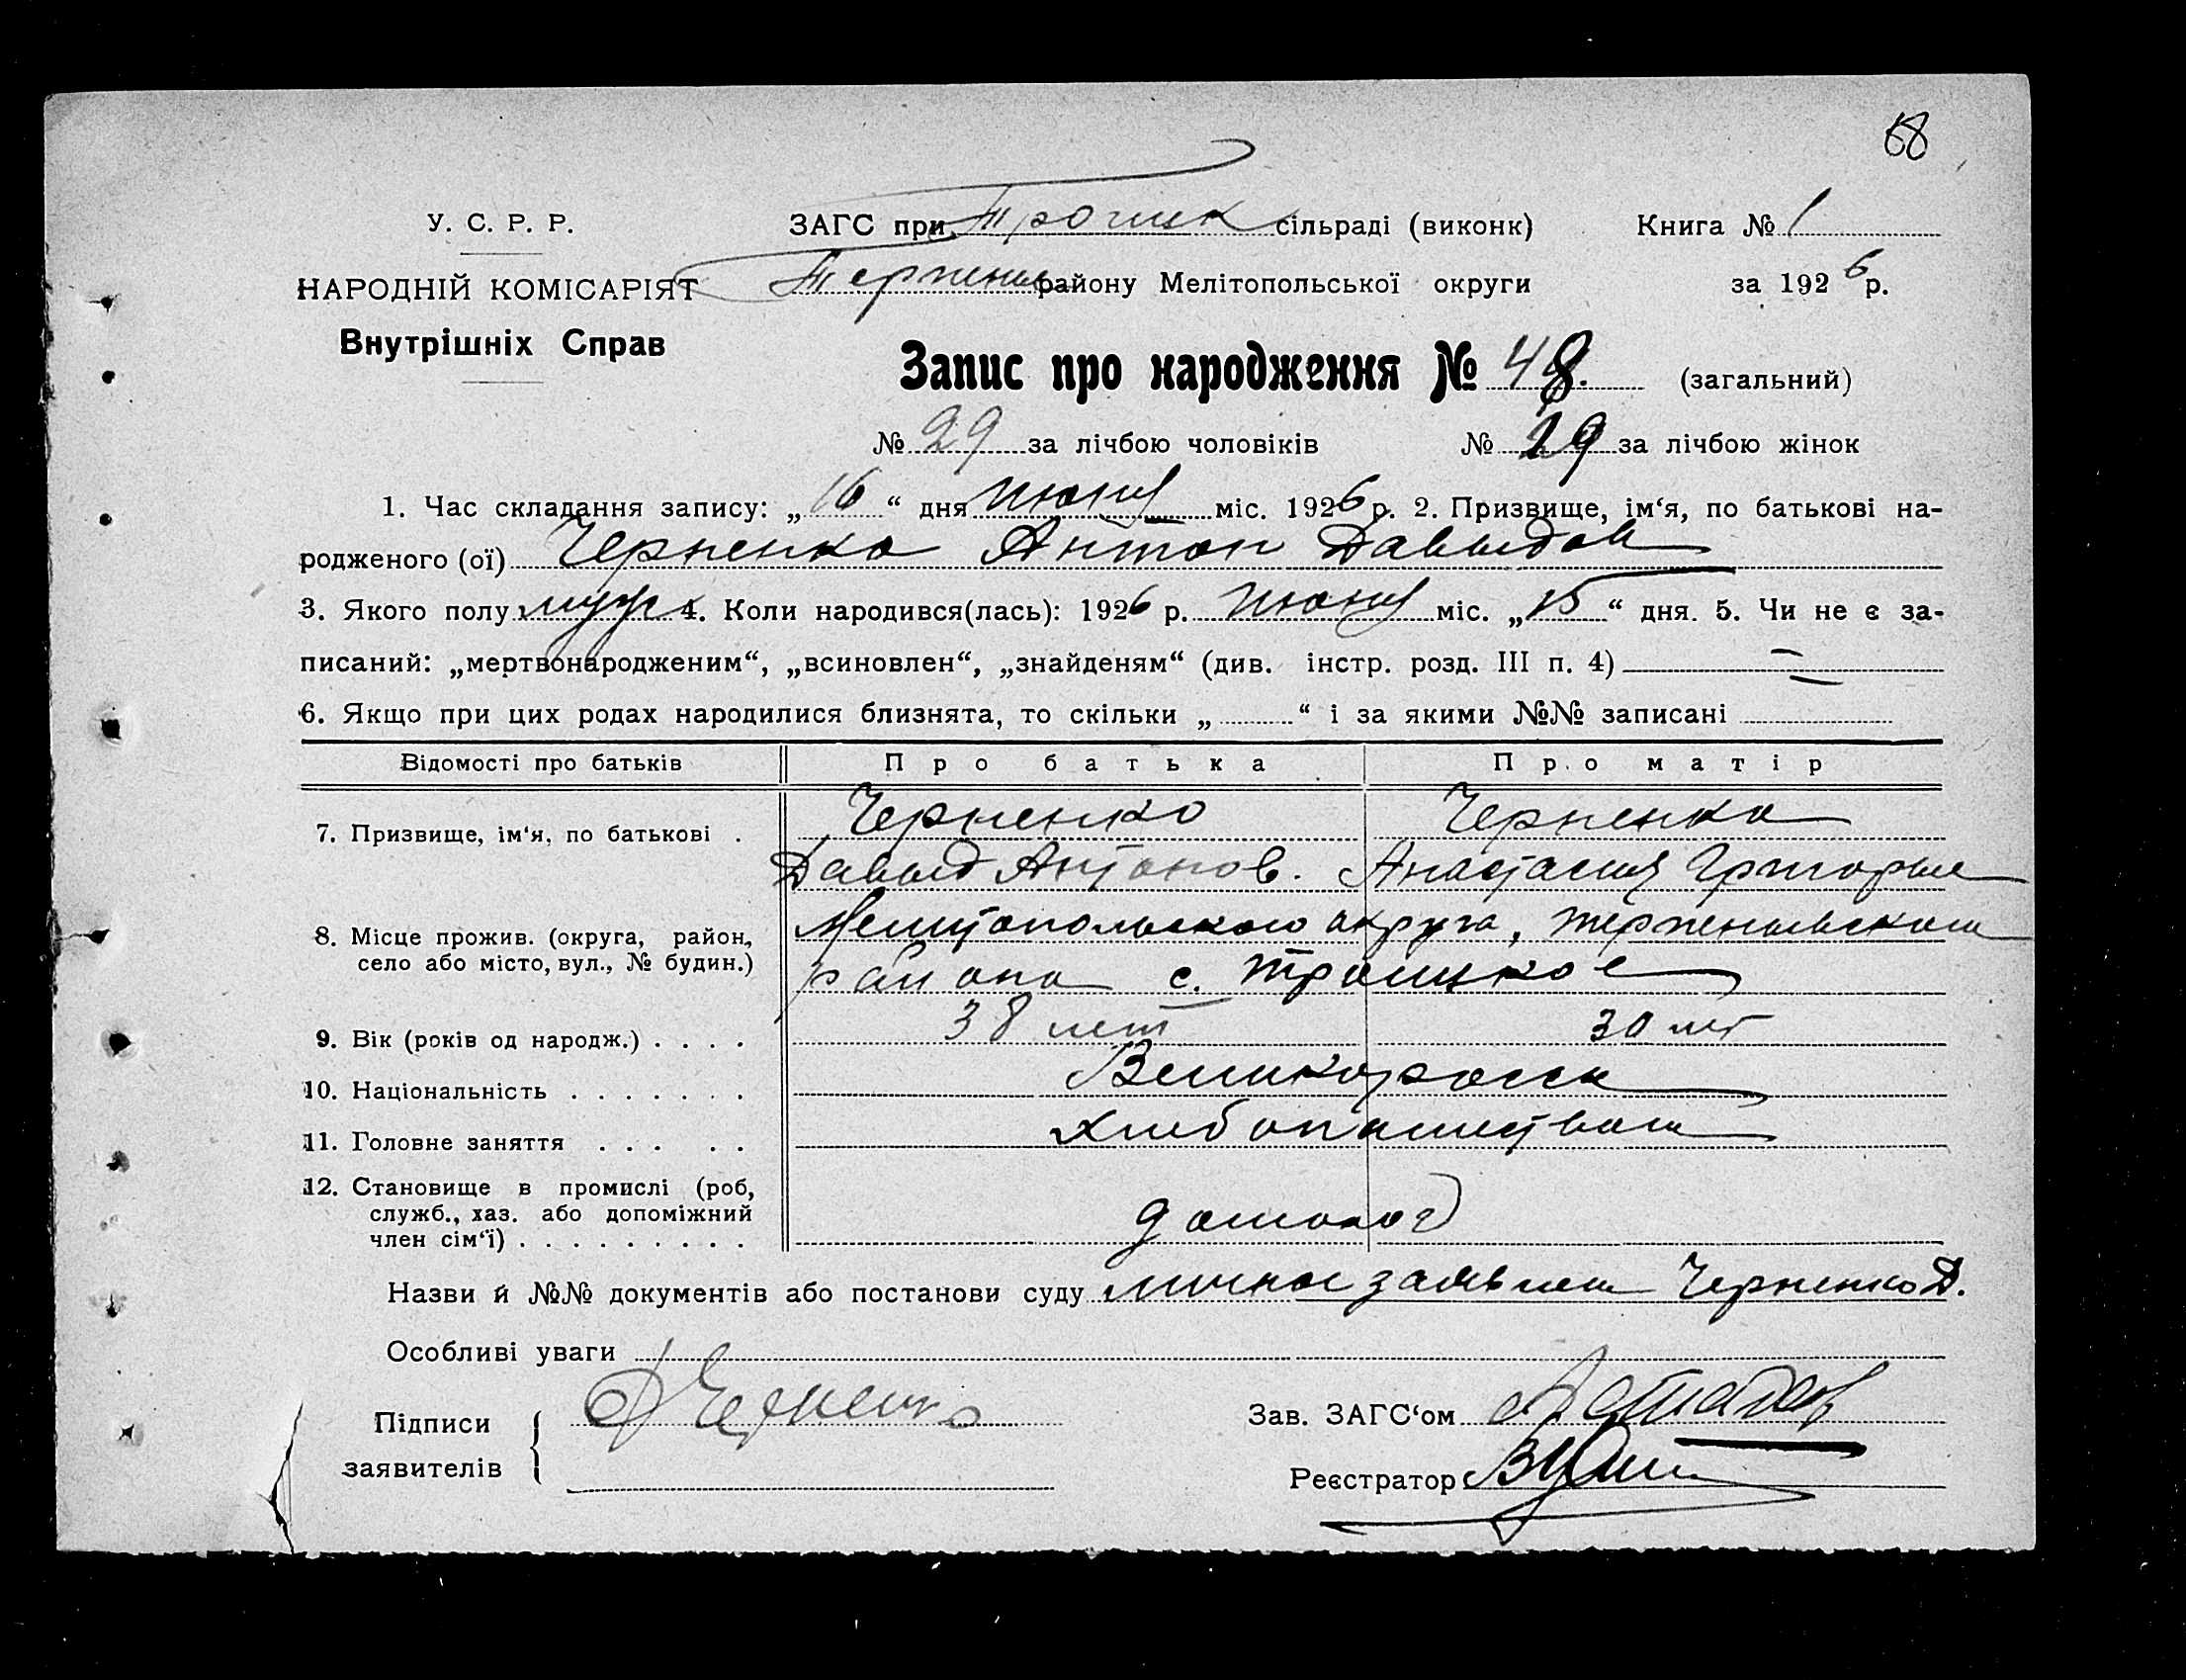 68
У. С. Р. Р.
ЗАГС при Троицк сільраді (виконк)
Книга № 1
НАРОДНІЙ КОМІСАРІЯТ
Терпение району Мелітопольської округи
за 1926 р.
Внутрішніх Справ
Запис про народження № 48. (загальний)
№ 29 за лічбою чоловіків № 19 за лічбою жінок
1. Час складання запису: „16“ дня июня міс. 1926 р. 2. Призвище, ім‘я, по батькові на-
родженого (ої) Черненко Антон Давыдов
3. Якого полу муж 4. Коли народився(лась): 1926 р. июня міс. „15“ дня. 5. Чи не є за-
писаний: „мертвонародженим“, „всиновлен“, „знайденям“ (див. інстр. розд. III п. 4) —
6. Якщо при цих родах народилися близнята, то скільки „ “ і за якими №№ записані
Відомості про батьків Про батька Про матір
7. Призвище, ім‘я, по батькові . Черненко Черненко
Давыд Антонов. Анастасия Григорьев
8. Місце прожив. (округа, район, село або місто, вул., № будин.) Мелитопольского округа, Терпеньевского
района с. Троицкое
9. Вік (років од народж.) . . . . 38 лет 30 лет
10. Національність . . . . . . . Великороссы
11. Головне заняття . . . . . хлебопашеством
12. Становище в промислі (роб,
служб., хаз. або допоміжний
член сім‘ї) . . . . . . . . . домохоз
Назви й №№ документів або постанови суду личное заявлен Черненко Д.
Особливі уваги
Підписи
заявителів
Д Черненко
Зав. ЗАГС‘ом
Реєстратор